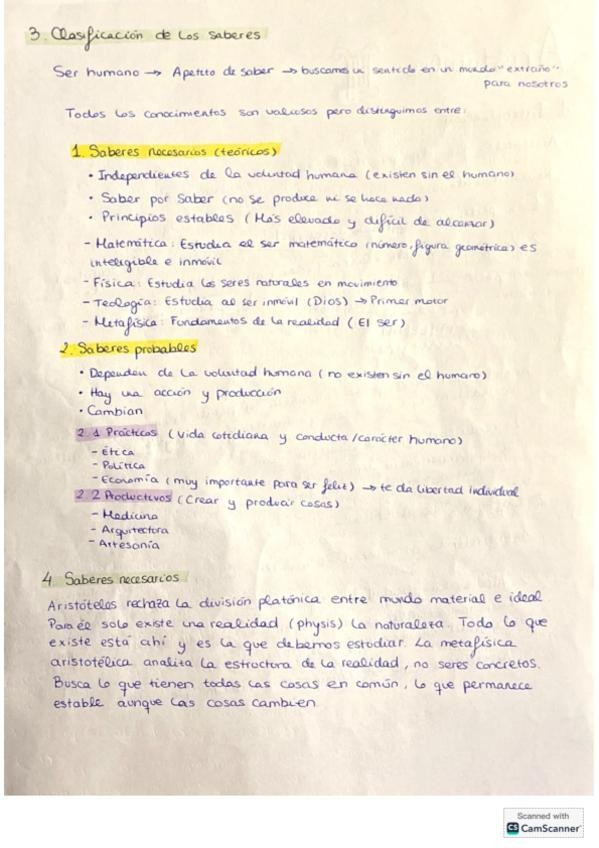 3. Clasificación de los saberes
Ser humano → Apetito de saber → buscamos un sentido en un mundo "extraño"
para nosotros
Todos los conocimientos son valiosos pero distinguimos entre:
1. Saberes necesarios (teóricos)
• Independientes de la voluntad humana (existen sin el humano)
• Saber por saber (no se produce ni se hace nada)
• Principios estables (Más elevado y difícil de alcanzar)
- Matemática: Estudia el ser matemático (número, figura geométrica) es
inteligible e inmóvil
- Física: Estudia los seres naturales en movimiento
- Teología: Estudia al ser inmóvil (Dios) → Primer motor
- Metafísica: Fundamentos de la realidad (El ser)
2. Saberes probables
• Dependen de la voluntad humana (no existen sin el humano)
• Hay una acción y producción
• Cambian
2.1 Prácticos (Vida cotidiana y conducta/carácter humano)
- Ética
- Política
- Economía (muy importante para ser feliz) → te da libertad individual
2.2 Productivos (Crear y producir cosas)
- Medicina
- Arquitectura
- Artesanía
4. Saberes necesarios
Aristóteles rechaza la división platónica entre mundo material e ideal
Para él solo existe una realidad (physis) la naturaleza. Todo lo que
existe está ahí y es la que debemos estudiar. La metafísica
aristotélica analiza la estructura de la realidad, no seres concretos.
Busca lo que tienen todas las cosas en común, lo que permanece
estable aunque las cosas cambien.
Scanned with
CS CamScanner